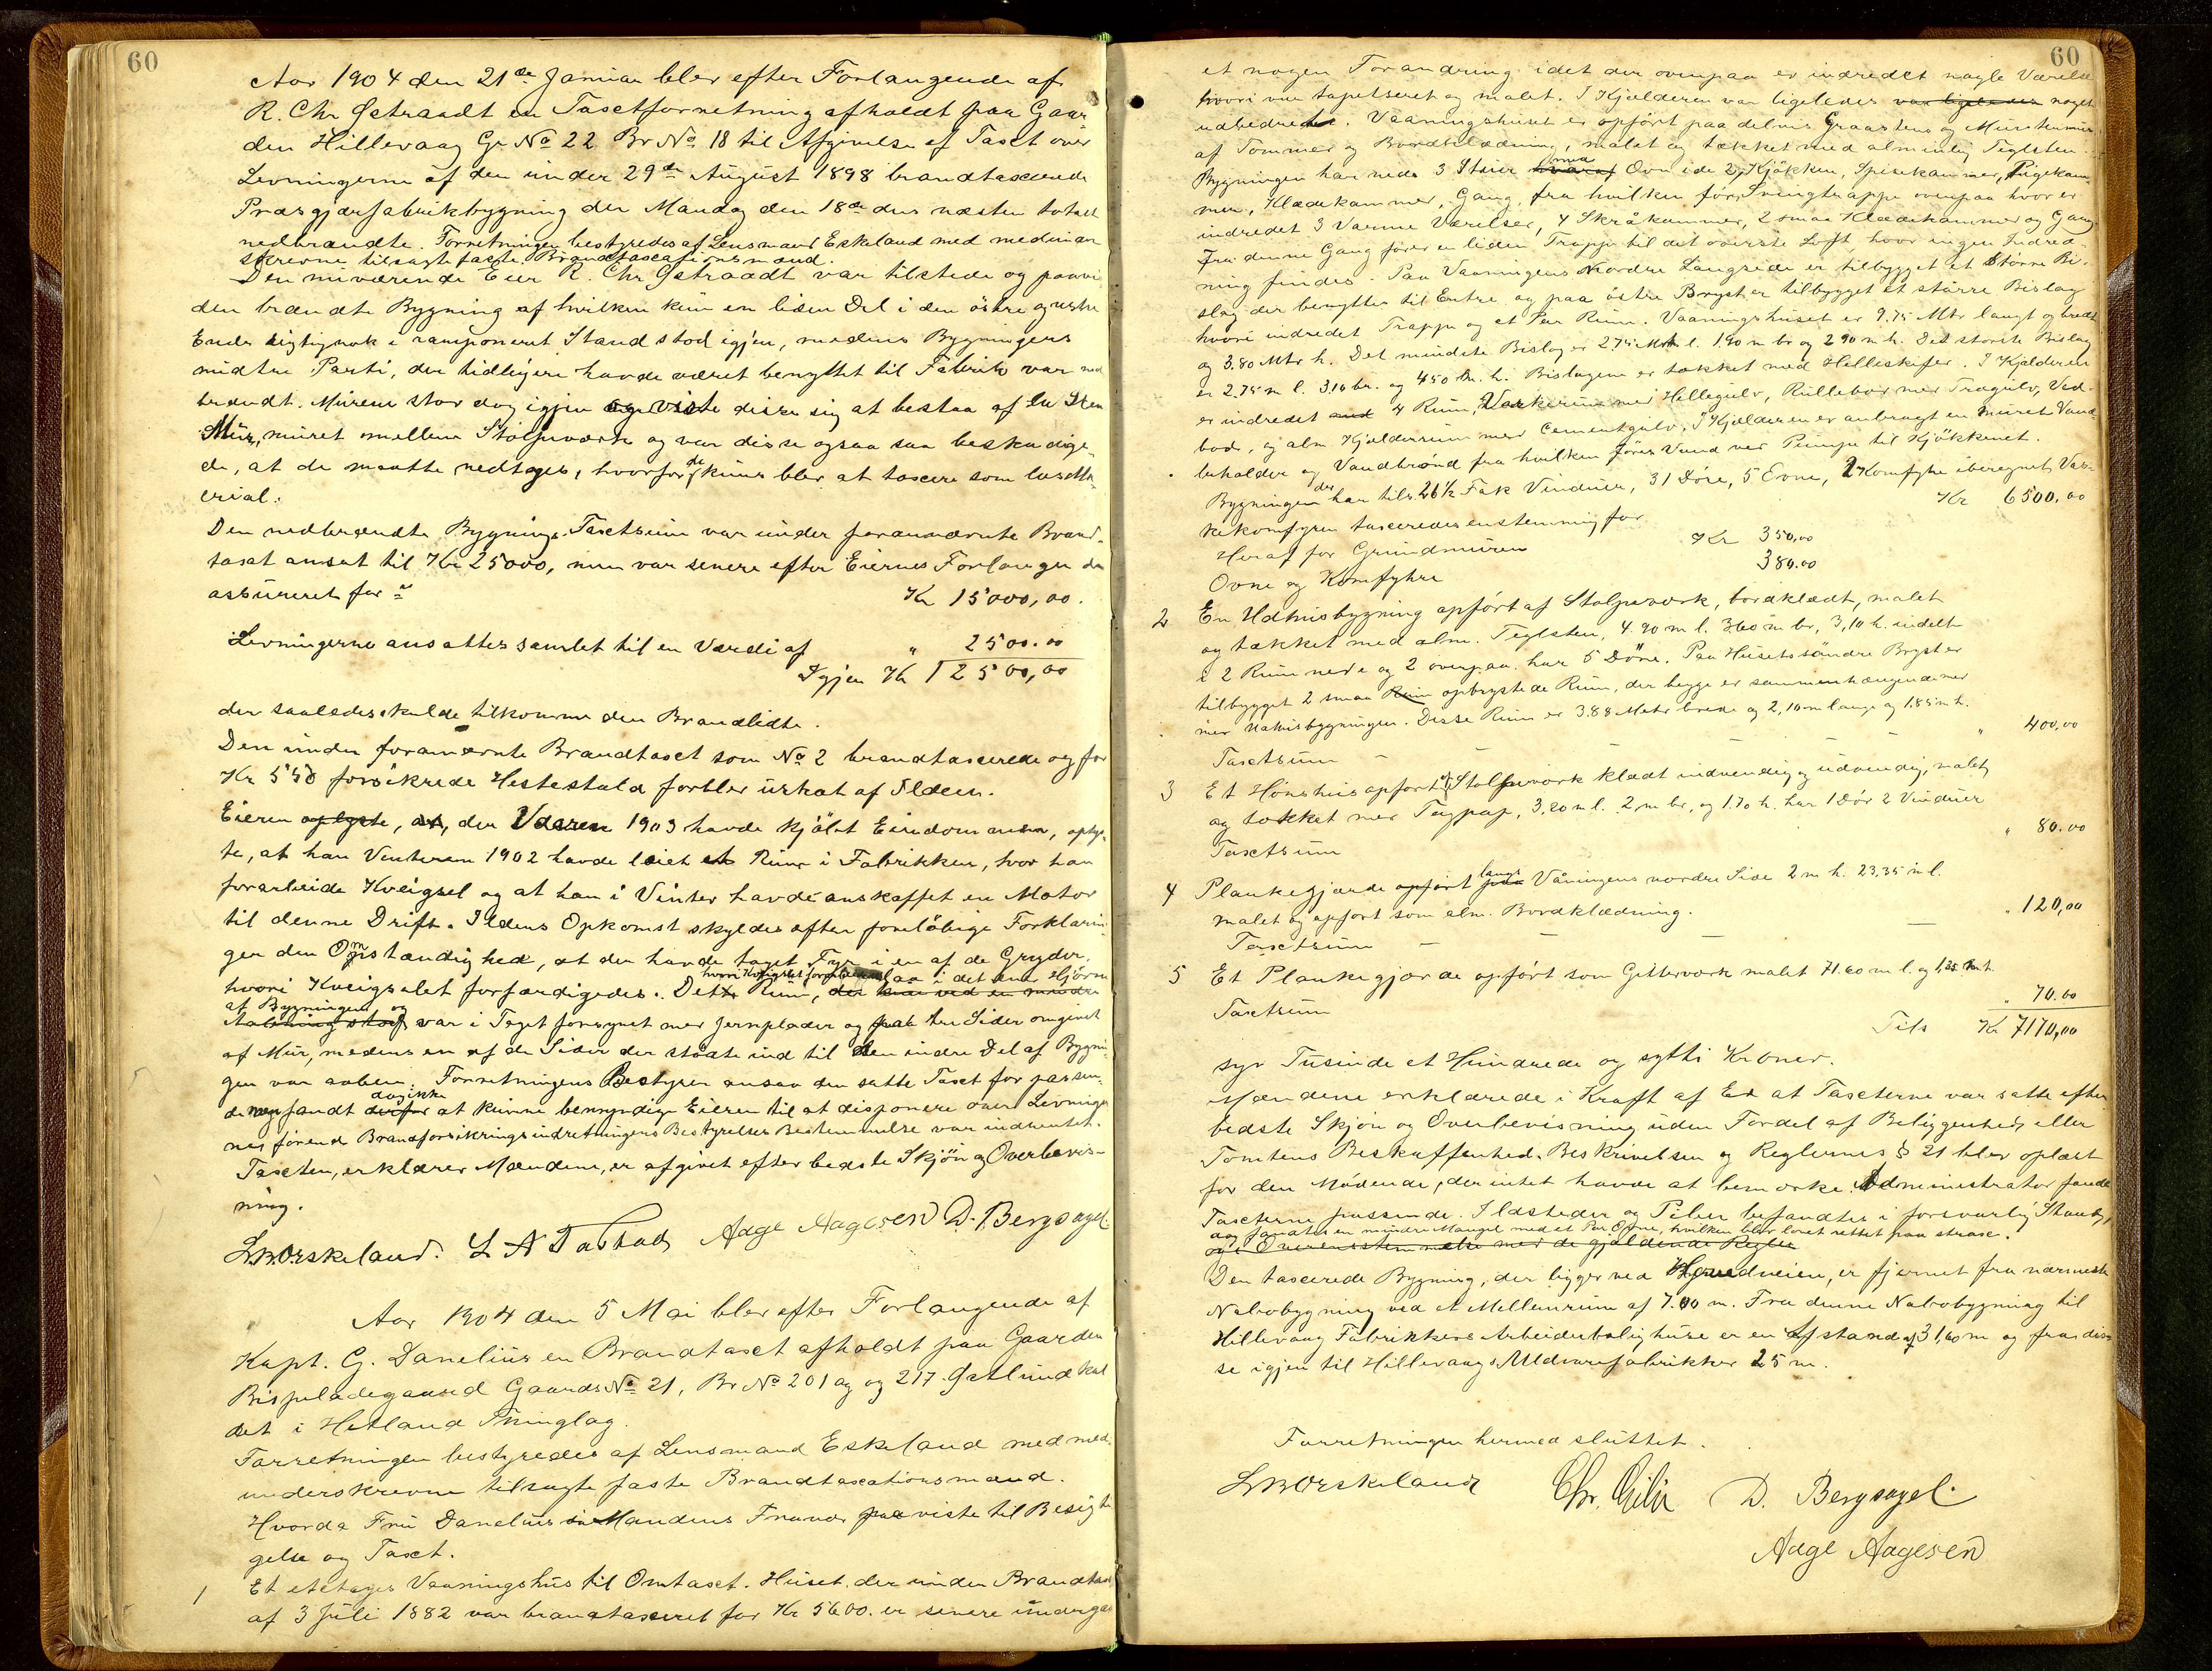 60
Aar 1904 den 21de Januar blev efter Forlangende af
R. Chr Østraadt en Taxtforretning afholdt paa Gaar
den Hillevaag Gr No 22 Br No 18 til Afgivelse af Taxt over
Levningerne af den under 29de August 1898 brandtaxerede
Præsgjærfabrikbygning der Mandag den 18de dns næsten totalt
nedbrændte. Forretningen bestyredes af Lensmand Eskeland med medunder
skrevne tilsagte faste Brandtaxationsmænd.
Den nuværende Eier R. Chr Østraadt var tilstede og paavi
den brændte Bygning af hvilken kun en liden Del i den østre og vestre
Ende rigtignok i ramponeret Stand stod igjen, medens Bygningens
midtre Parti, der tidligere havde været benyttet til Fabrik var ned
brændt. Murene stod dog igjen og viste disse sig at bestaa af en Sten
Mur, muret mellem Stolpeværk og var disse ogsaa saa beskadige-
de, at de maatte nedtages, hvorfor de kuns blev at taxere som løs Ma-
terial.
Den nedbrændte Bygnings Taxtsum var under forannævnte Brand-
taxt ansat til Kr 25000, men var senere efter Eiernes Forlangende
assureret for Kr 15000,00.
Levningerne ansattes samlet til en Værdi af " 2500.00
Igjen Kr 12500,00
der saaledes skulde tilkomme den Brandlidte.
Den under forannævnte Brandtaxt som No 2 brandtaxerede og for
Kr 550 forsikrede Hestestald forblev urørt af Ilden.
Eieren oplyste, at, der Vaaren 1903 havde kjøbt Eiendommen, oplys-
te, at han Vinteren 1902 havde leiet et Rum i Fabrikken, hvor han
forarbeide Kveigsel og at han i Vinter havde anskaffet en Motor
til denne Drift. Ildens Opkomst skyldes efter foreløbige Forklarin
ger den Omstændighed, at der havde taget Fyr i en af de Gryder,
hvori Kveigselet forfærdigedes. Dette Rum, hvori Kveigslet laa i det ene Hjørne
af Bygningen og var i Taget forsynet med Jernplader og paa tre Sider omgivet
af Mur, medens en af de Sider der stødte ind til den indre Del af Bygnin
gen var aaben. Forretningens Bestyrer ansaa den satte Taxt for passen-
de men fandt dog ikke at kunne bemyndige Eieren til at disponere over Levninger
nes førend Brandforsikringsindretningens Bestyrelses Bestemmelse var indhentet.
Taxten, erklærer Mændene, er afgivet efter bedste Skjøn og Overbevis-
ning.
L.M. Eskeland. L N Tastad Aage Aagesen D. Bergsagel.
Aar 1904 den 5 Mai blev efter Forlangende af
Kapt. G. Danelius en Brandtaxt afholdt paa Gaarden
Bispeladegaard Gaards No 21, Br No 201 og 217 Østlund kal
det i Hetland Thinglag.
Forretningen bestyredes af Lensmand Eskeland med med-
underskrevne tilsagte faste Brandtaxationsmænd.
Hvorda Fru Danelius i Mandens Fravær paaviste til Besigti
gelse og Taxt.
1 Et etetages Vaaningshus til Omtaxt. Huset, der under Brandtaxt
af 3 Juli 1882 var brandtaxeret for Kr 5600. er senere undergaa
60
et nogen Forandring idet der ovenpaa er indredet nogle Værelser
hvori var tapetseret og malet. I Kjælderen var ligeledes var ligeledes noget
udbedret. Vaaningshuset er opført paa delvis Graastens og Murstensmur
af Tømmer og Bordklædning, malet og tækket med almindelig Teglsten.
Bygningen har nede 3 Stuer hvoraf med Ovn i de 2, Kjøkken, Spisekammer, Pigekam
mer, Klædekammer, Gang, fra hvilken fører Svingtrappe ovenpaa hvor er
indredet 3 Varme Værelser, 4 Skråkammer, 2 smaa Klædekammer og Gang
Fra denne Gang fører en liden Trappe til det øverste Loft hvor ingen Indred-
ning findes. Paa Vaaningens Nordre Langside er tilbygget et Større Bi-
slag der benyttes til Entre og paa østre Bryst er tilbygget et større Bislag
hvori indredet Trappe og et Par Rum. Vaaningshuset er 9.75 Mtr langt og bredt
og 3.80 Mtr h. Det mindste Bislag er 2.75 Mtr l. 1.90 m br og 2.90 m h. Det største Bislag
er 2.75 m l. 3.10 br. og 4.50 m. h. Bislagene er tækket med Helleskifer. I Kjælderen
er indredet 4 Rum, Vaskerum med Hellegulv, Rullebod med Trægulv, Ved-
bod, og alm Kjælderrum med Cementgulv. I Kjælderen er anbragt en muret Vand
beholder og Vandbrønd fra hvilken føres Vand ved Pumpe til Kjøkkenet.
Bygningen der har tils. 26½ Fak Vinduer, 31 Døre, 5 Ovne, 2 Komfyhr iberegnet Vas-
kekomfyren taxeredes enstemmig for Kr 6500,00
Heraf for Grundmuren Kr 350,00
Ovne og Komfyhre 380.00
2 En Udhusbygning opført af Stolpeværk, bordklædt, malet
og tækket med alm. Teglsten, 4.90 m l. 3.60 m br, 3,10 h. indelt
i 2 Rum nede og 2 ovenpaa. har 5 Døre. Paa Husets søndre Bryst er
tilbygget 2 smaa Rum opbrystede Rum, der begge er sammenhængende med
med Uthusbygningen. Disse Rum er 3.88 Meter brede og 2,10 m lange og 1.85 m h.
Taxtsum " 400,00
3 Et Hønshus opført af Stolpeværk klædt indvendig og udvendig, malet
og tækket med Tagpap, 3,20 m l. 2 m br, og 1.70 h. har 1 Dør 2 Vinduer
Taxtsum " 80.00
4 Plankegjærde opført langs Våningens nordre Side 2 m h. 23.35 m l.
malet og opført som alm. Bordklædning.
Taxtsum " 120,00
5 Et Plankegjærde opført som Gitterværk malet 71.60 m l. og 1,25 m h.
Taxtsum " 70.00
Tils Kr 7170,00
syv Tusinde et Hundrede og sytti Kroner.
Mændene erklærede i Kraft af Ed at Taxterne var satte efter
bedste Skjøn og Overbevisning uden Fordel af Beliggenhed, eller
Tomtens Beskaffenhed. Beskrivelsen og Reglernes § 21 blev oplæst
for den Mødende, der intet havde at bemærke. Administrator fandt
Taxterne passende. Ildsteder og Piber befandtes i forsvarlig Stand,
dog fandtes en mindre Mangel ved et Par Ovne, hvilken blev lovet rettet paa straxs.
og i Overensstemmelse med de gjældende Regler
Den taxerede Bygning, der ligger ved Hovedveien, er fjernet fra nærmeste
Nabobygning ved et Mellemrum af 7.00 m. Fra denne Nabobygning til
Hillevaag Fabrikkers Arbeiderbolighuse er en Afstand af 31,60 m og fra dis
se igjen til Hillevaags Uldvarefabrikker 25 m.
Forretningen hermed sluttet.
L.M. Eskeland Chr. D. Bergsagel.
Aage Aagesen